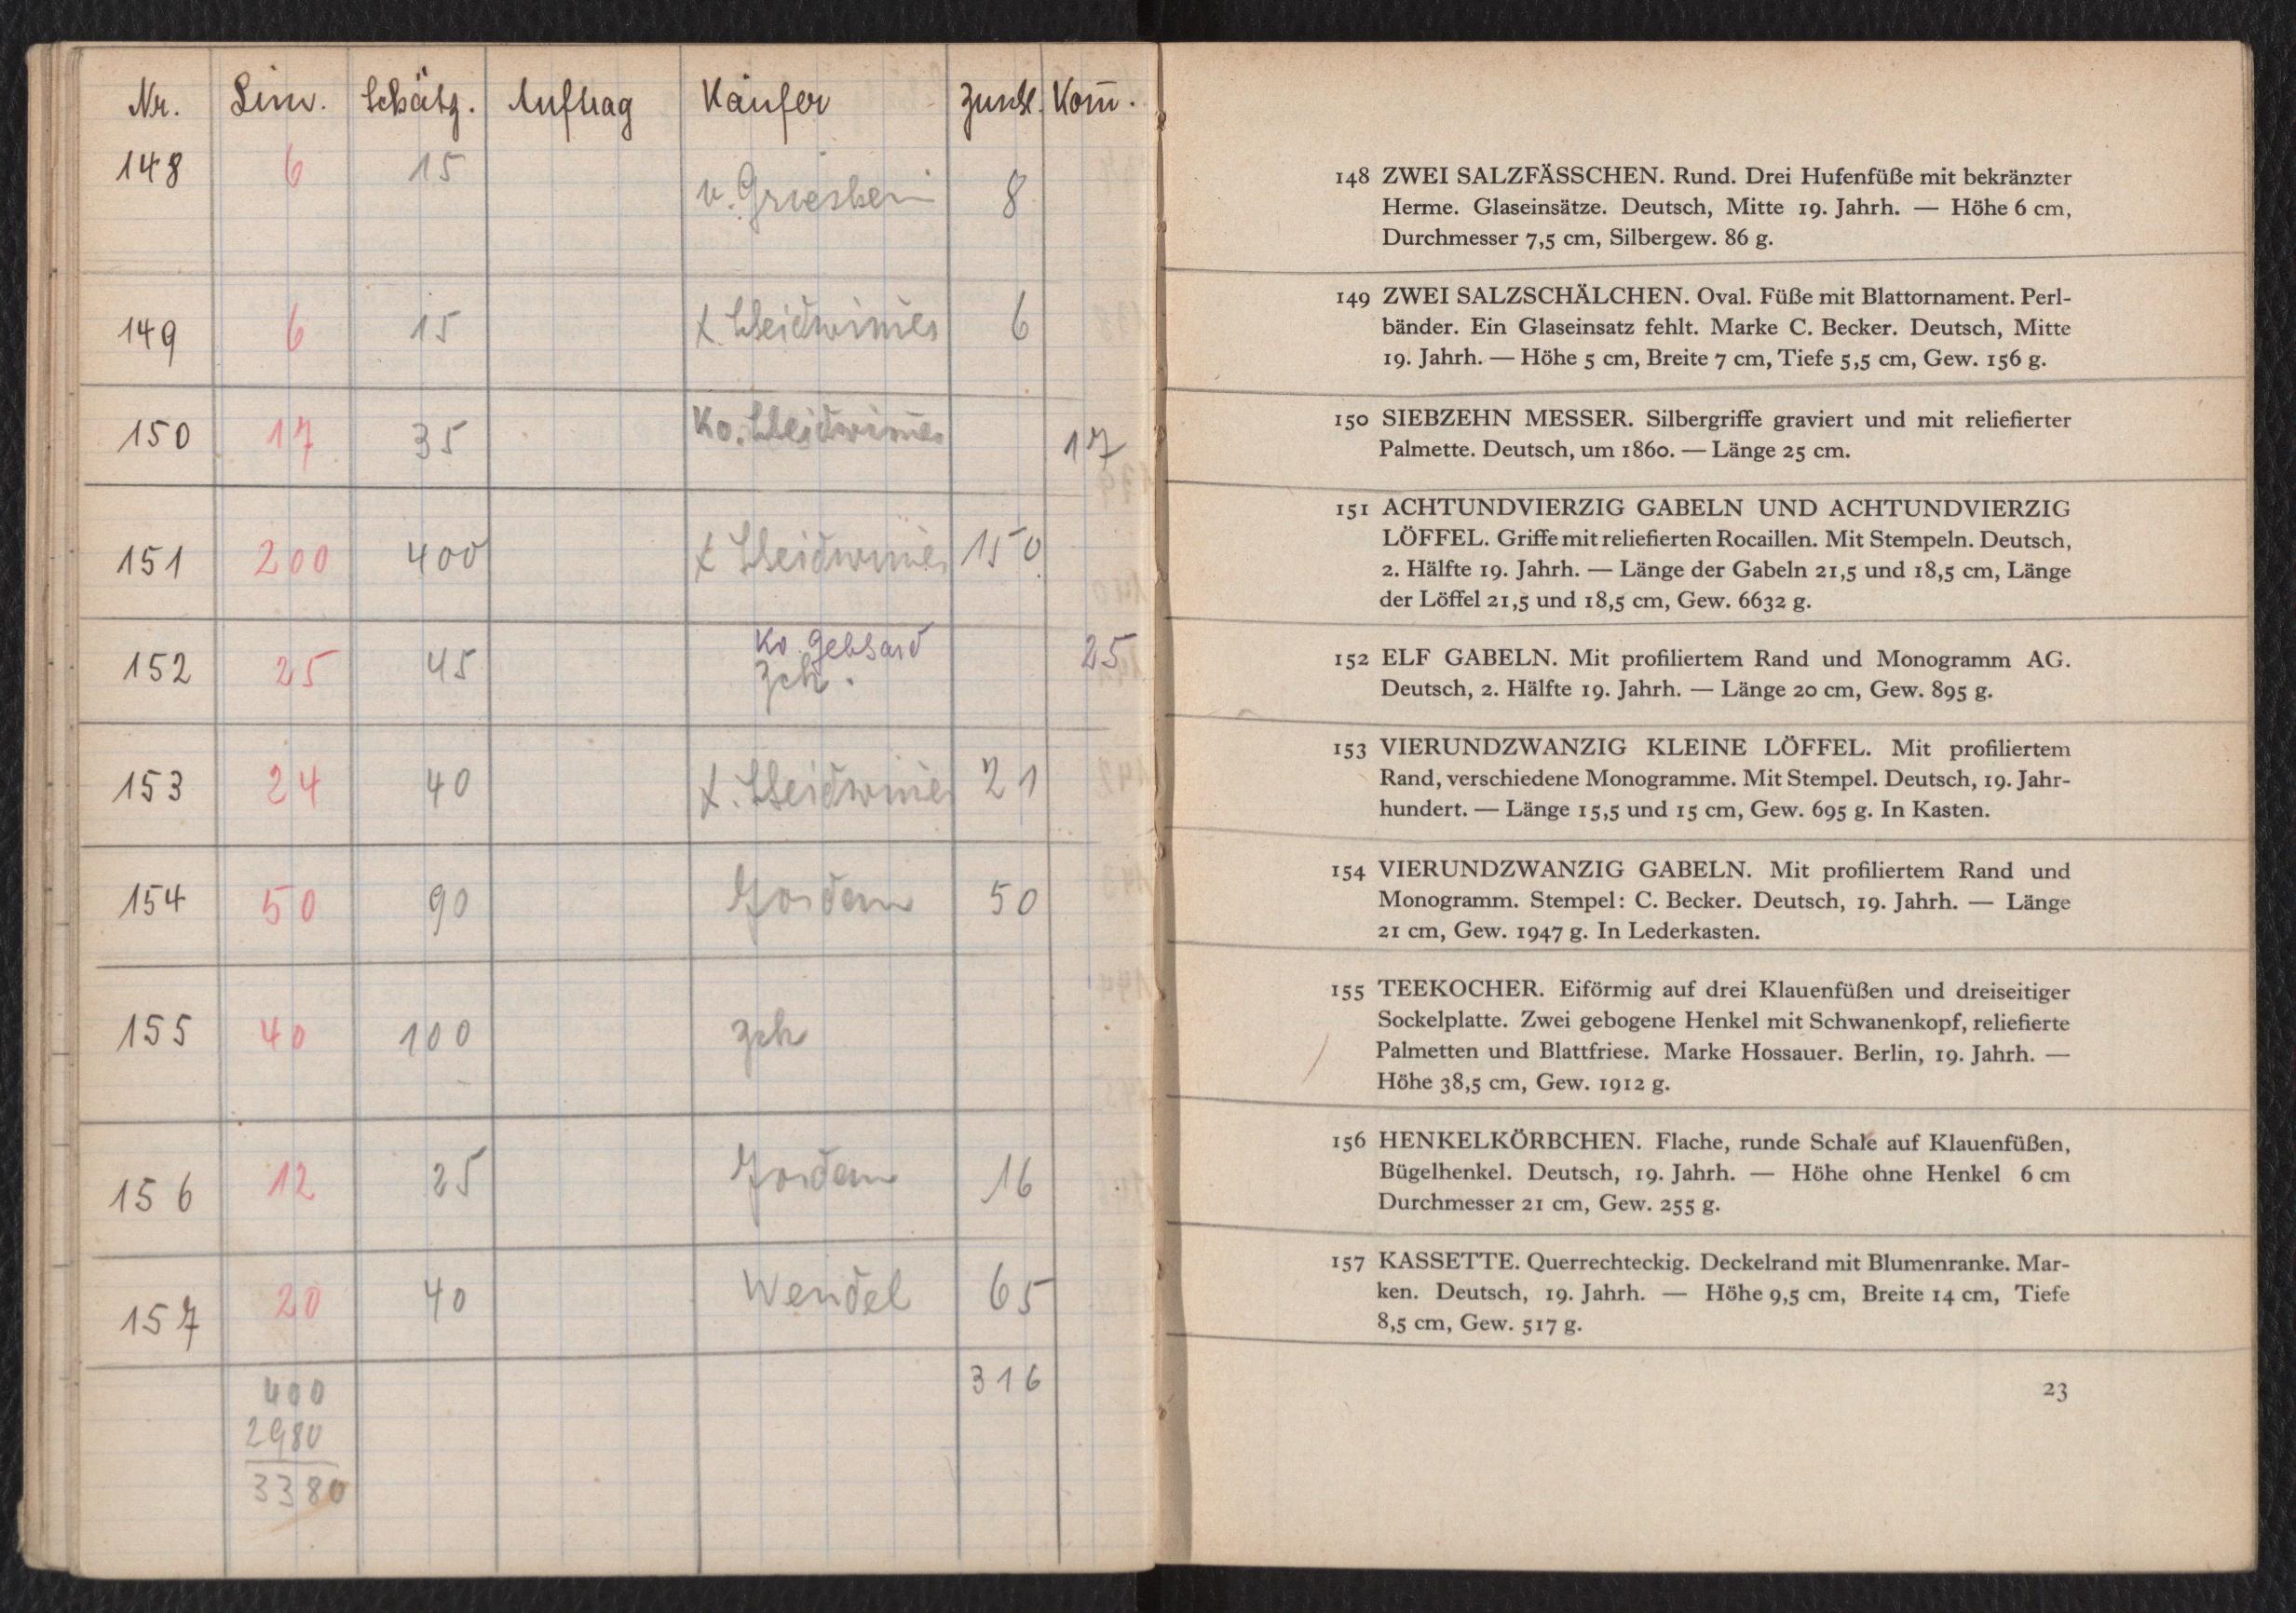 Nr. Lim. Schätz. Auftrag Käufer Zuschl. Kom̄.
148 6 15 v. Griesheim 8
149 6 15 6
150 17 35 Ko. 17
151 200 400 150
152 25 45 Ko. Gebhard 25
zch.
153 24 40 21
154 50 90 Jordan 50
155 40 100 zch
156 12 25 Jordan 16
157 20 40 Wendel 65
316
400
2980
3380
148 ZWEI SALZFÄSSCHEN. Rund. Drei Hufenfüße mit bekränzter
Herme. Glaseinsätze. Deutsch, Mitte 19. Jahrh. — Höhe 6 cm,
Durchmesser 7,5 cm, Silbergew. 86 g.
149 ZWEI SALZSCHÄLCHEN. Oval. Füße mit Blattornament. Perl-
bänder. Ein Glaseinsatz fehlt. Marke C. Becker. Deutsch, Mitte
19. Jahrh. — Höhe 5 cm, Breite 7 cm, Tiefe 5,5 cm, Gew. 156 g.
150 SIEBZEHN MESSER. Silbergriffe graviert und mit reliefierter
Palmette. Deutsch, um 1860. — Länge 25 cm.
151 ACHTUNDVIERZIG GABELN UND ACHTUNDVIERZIG
LÖFFEL. Griffe mit reliefierten Rocaillen. Mit Stempeln. Deutsch,
2. Hälfte 19. Jahrh. — Länge der Gabeln 21,5 und 18,5 cm, Länge
der Löffel 21,5 und 18,5 cm, Gew. 6632 g.
152 ELF GABELN. Mit profiliertem Rand und Monogramm AG.
Deutsch, 2. Hälfte 19. Jahrh. — Länge 20 cm, Gew. 895 g.
153 VIERUNDZWANZIG KLEINE LÖFFEL. Mit profiliertem
Rand, verschiedene Monogramme. Mit Stempel. Deutsch, 19. Jahr-
hundert. — Länge 15,5 und 15 cm, Gew. 695 g. In Kasten.
154 VIERUNDZWANZIG GABELN. Mit profiliertem Rand und
Monogramm. Stempel: C. Becker. Deutsch, 19. Jahrh. — Länge
21 cm, Gew. 1947 g. In Lederkasten.
155 TEEKOCHER. Eiförmig auf drei Klauenfüßen und dreiseitiger
Sockelplatte. Zwei gebogene Henkel mit Schwanenkopf, reliefierte
Palmetten und Blattfriese. Marke Hossauer. Berlin, 19. Jahrh. —
Höhe 38,5 cm, Gew. 1912 g.
156 HENKELKÖRBCHEN. Flache, runde Schale auf Klauenfüßen,
Bügelhenkel. Deutsch, 19. Jahrh. — Höhe ohne Henkel 6 cm
Durchmesser 21 cm, Gew. 255 g.
157 KASSETTE. Querrechteckig. Deckelrand mit Blumenranke. Mar-
ken. Deutsch, 19. Jahrh. — Höhe 9,5 cm, Breite 14 cm, Tiefe
8,5 cm, Gew. 517 g.
23